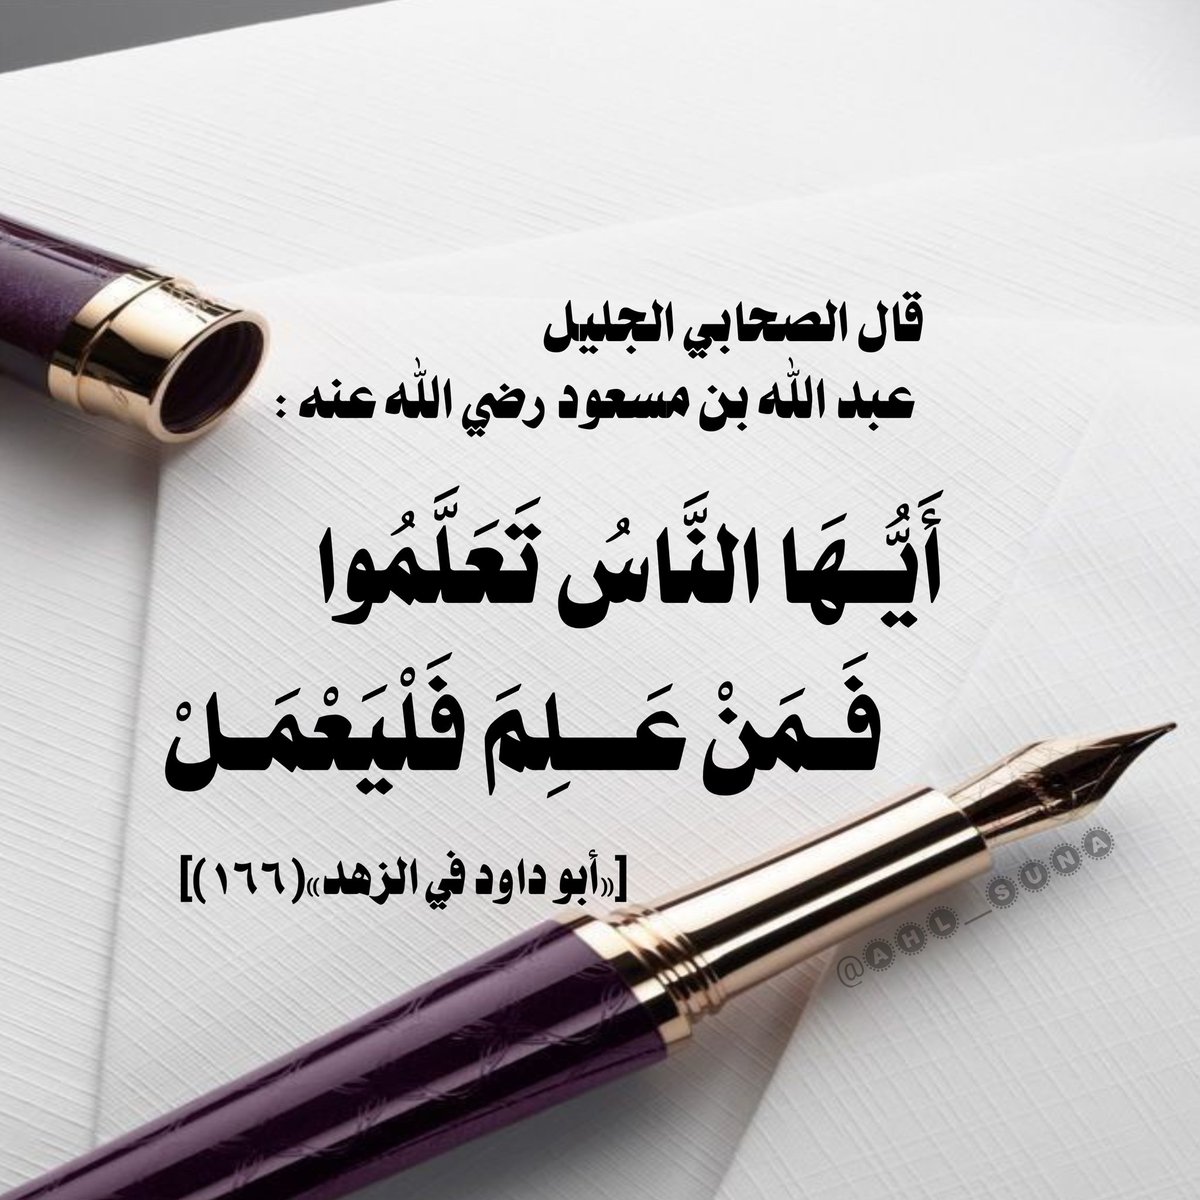 قال الصحابي الجليل
عبد الله بن مسعود رضي الله عنه :
أَيُّـهَا النَّاسُ تَعَلَّمُوا
فَـمَنْ عَـــلِمَ فَلْيَعْمَـلْ
[«أبو داود في الزهد»(١٦٦)]
@AHL_SUNA